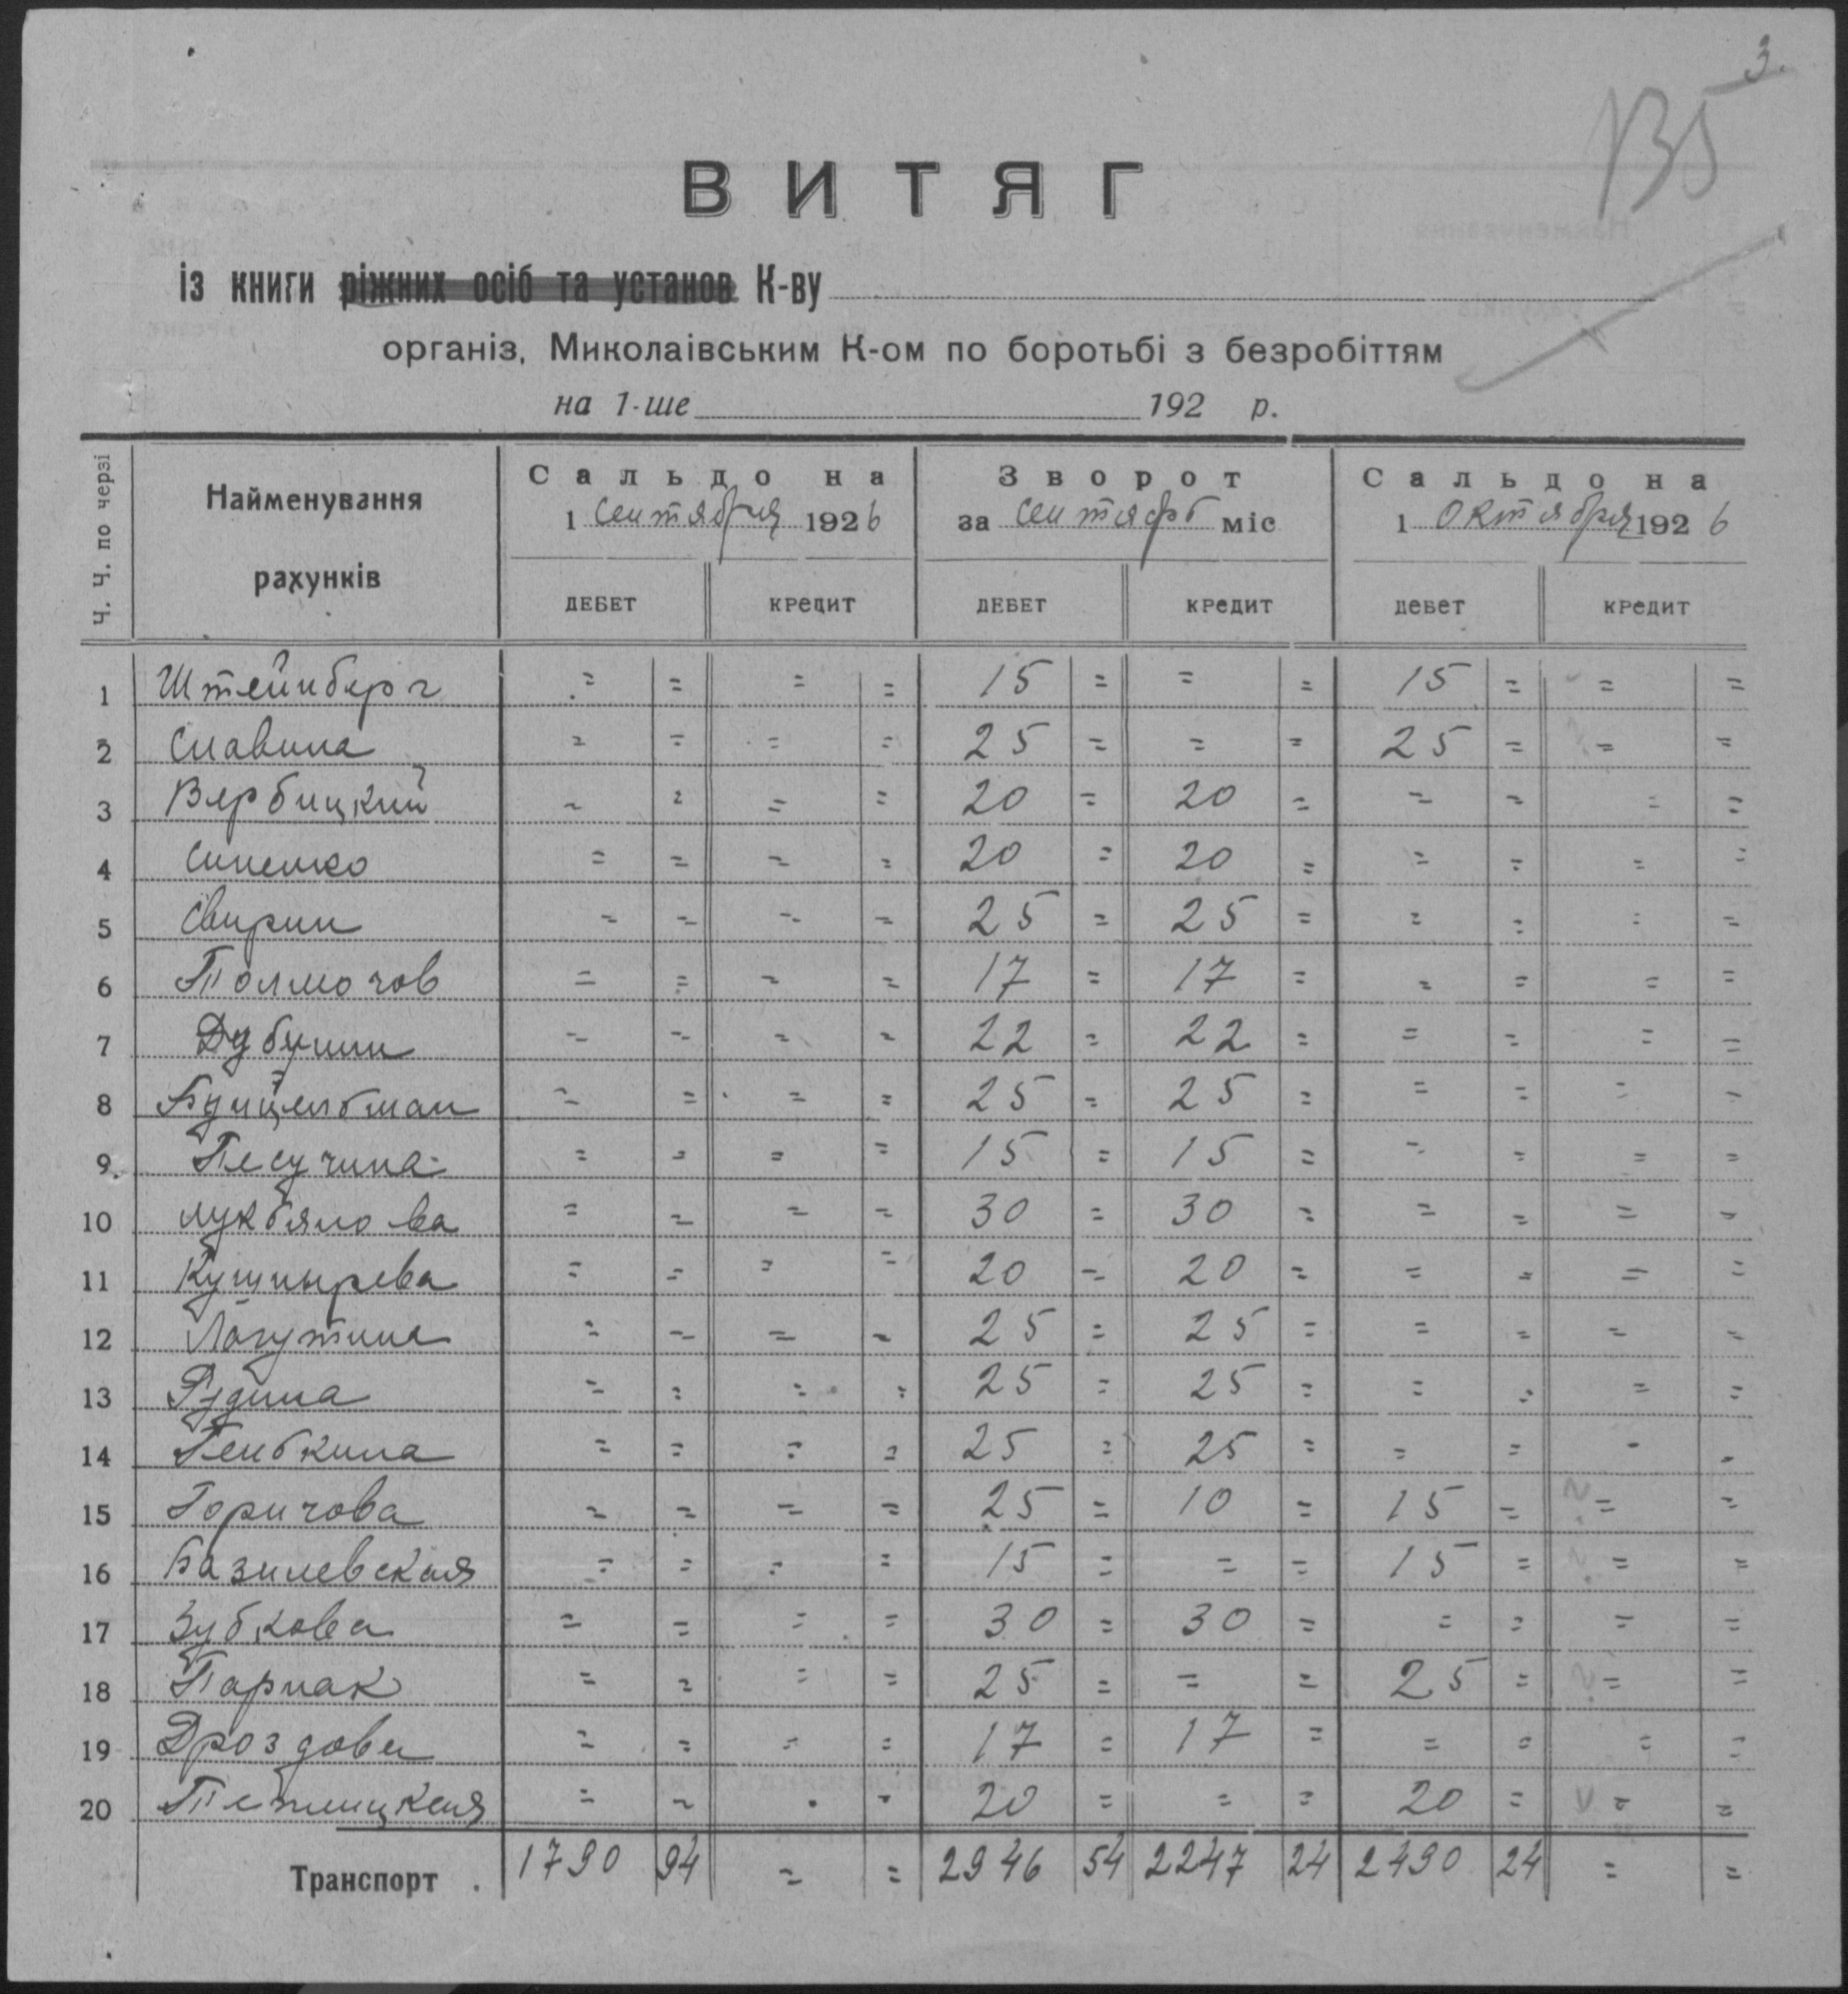 3.
135
ВИТЯГ
із книги ріжних осіб та установ К-ву
організ, Миколаівським К-ом по боротьбі з безробіттям
на 1-ше 192 р.
Ч. Ч. по черзі
Найменування рахунків
Сальдо на 1 Сентября 1926
Зворот за Сентябрь міс
Сальдо на 1 Октября 1926
ДЕБЕТ КРЕДИТ ДЕБЕТ КРЕДИТ ДЕБЕТ КРЕДИТ
1 Штейнберг = = = = 15 = = = 15 = = =
2 Славина = = = = 25 = = = 25 = = =
3 Вербицкий = = = = 20 = 20 = = = = =
4 Синенко = = = = 20 = 20 = = = = =
5 Свирин = = = = 25 = 25 = = = = =
6 Толмочов = = = = 17 = 17 = = = = =
7 = = = = 22 = 22 = = = = =
8 = = = = 25 = 25 = = = = =
9 Песучина = = = = 15 = 15 = = = = =
10 Лукьянова = = = = 30 = 30 = = = = =
11 Кушнырева = = = = 20 = 20 = = = = =
12 Логутина = = = = 25 = 25 = = = = =
13 Рудина = = = = 25 = 25 = = = = =
14 = = = = 25 = 25 = = = = =
15 Горичова = = = = 25 = 10 = 15 = = =
16 Базилевская = = = = 15 = = = 15 = = =
17 Зубкова = = = = 30 = 30 = = = = =
18 Парнак = = = = 25 = = = 25 = = =
19 Дроздова = = = = 17 = 17 = = = = =
20 = = = = 20 = = = 20 = = =
Транспорт 1790 94 = = 2946 54 2247 24 2490 24 = =